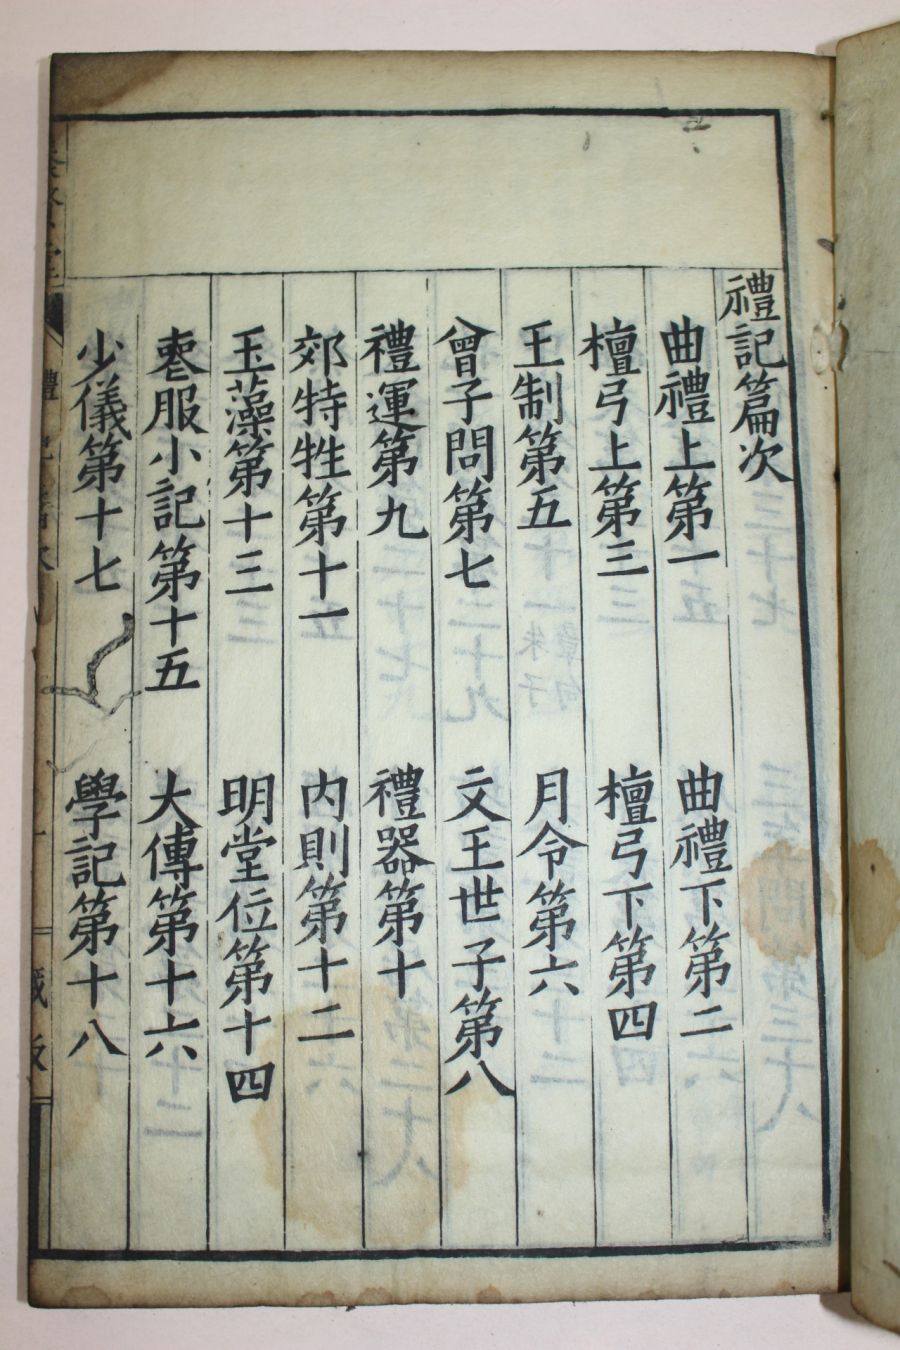 禮記篇次
曲禮上第一 曲禮下第二
檀弓上第三 檀弓下第四
王制第五 月令第六
曾子問第七 文王世子第八
禮運第九 禮器第十
郊特牲第十一 内則第十二
玉藻第十三 明堂位第十四
喪服小記第十五 大傳第十六
少儀第十七 學記第十八